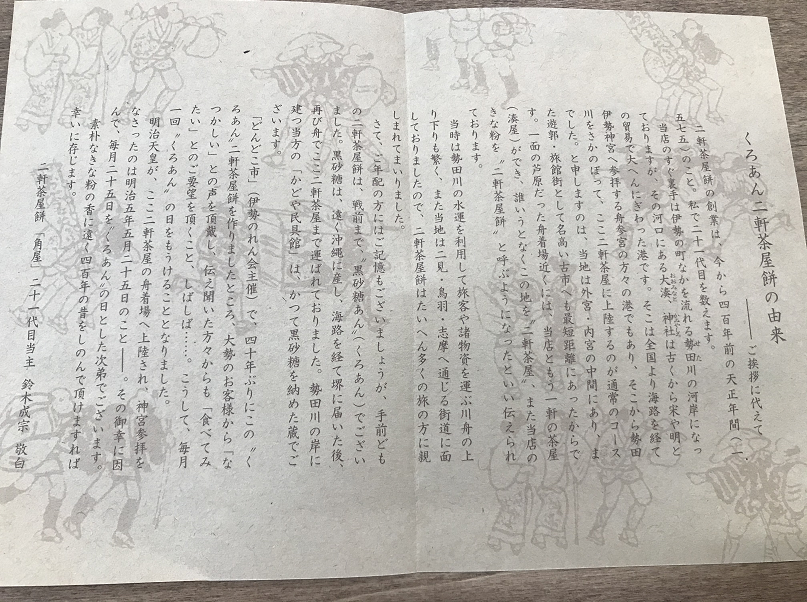 くろあん二軒茶屋餅の由来
――ご挨拶に代えて
二軒茶屋餅の創業は、今から四百年前の天正年間（一、
五七五）のこと。私で二十一代目を数えます。
当店のすぐ裏手は伊勢の町なかを流れる勢田川の河岸になっ
ておりますが、その河口にある大湊、神社は古くから宋や明と
の貿易で大へんにぎわった港です。そこは全国より海路を経て
伊勢神宮へ参拝する舟参宮の方々の港でもあり、そこから勢田
川をさかのぼって、ここ二軒茶屋に上陸するのが通常のコース
でした。と申しますのは、当地は外宮・内宮の中間にあり、ま
た遊郭、旅館街として名高い古市へも最短距離にあったからで
す。一面の芦原だった舟着場近くには、当店ともう一軒の茶屋
（湊屋）ができ、誰いうとなくこの地を〝二軒茶屋〟、また当店の
きな粉を〝二軒茶屋餅〟と呼ぶようになったといい伝えられ
ております。
当時は勢田川の水運を利用して旅客や諸物資を運ぶ川舟の上
り下りも繁く、また当地は二見・鳥羽・志摩へ通じる街道に面
しておりましたので、二軒茶屋餅はたいへん多くの旅の方に親
しまれてまいりました。
さて、ご年配の方にはご記憶もございましょうが、手前ども
の二軒茶屋餅は、戦前まで〝黒砂糖あん〟（くろあん）でござい
ました。黒砂糖は、遠く沖縄に産し、海路を経て堺に届いた後、
再び舟でここ二軒茶屋まで運ばれておりました。勢田川の岸に
建つ当方の「かどや民具館」は、かつて黒砂糖を納めた蔵でご
ざいます。
『どんどこ市』（伊勢のれん会主催）で、四十年ぶりにこの〝く
ろあん〟二軒茶屋餅を作りましたところ、大勢のお客様から「な
つかしい」との声を頂戴し、伝え聞いた方々からも「食べてみ
たい」とのご要望を頂くこと、しばしば……。こうして、毎月
一回〝くろあん〟の日をもうけることとなりました。
明治天皇が、ここ二軒茶屋の舟着場へ上陸され、神宮参拝を
なさったのは明治五年五月二十五日のこと――。その御幸に因
んで、毎月二十五日を〝くろあん〟の日とした次第でございます。
素朴なきな粉の香に遠く四百年の昔をしのんで頂けますれば
幸いに存じます。
二軒茶屋餅「角屋」二十一代目当主 鈴木成宗 敬白